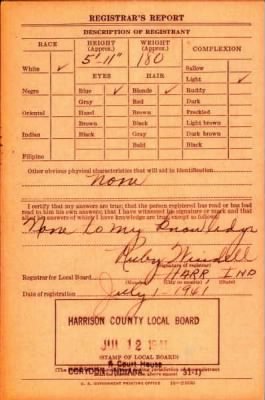 REGISTRAR'S REPORT
DESCRIPTION OF REGISTRANT
RACE HEIGHT (Approx.) WEIGHT (Approx.) COMPLEXION
White ✓ 5'-11" 180 Sallow
EYES HAIR Light ✓
Negro Blue ✓ Blonde ✓ Ruddy
Gray Red Dark
Oriental Hazel Brown Freckled
Brown Black Light brown
Indian Black Gray Dark brown
Bald Black
Filipino
Other obvious physical characteristics that will aid in identification
None
I certify that my answers are true; that the person registered has read or has had
read to him his own answers; that I have witnessed his signature or mark and that
all of his answers of which I have knowledge are true, except as follows:
None to my Knowledge
Ruby
(Signature of registrar)
Registrar for Local Board HARR IND
(Number) (City or county) (State)
Date of registration July 1-1941
HARRISON COUNTY LOCAL BOARD
JUL 12 1941
(STAMP OF LOCAL BOARD)
Court House
CORYDON, INDIANA
U. S. GOVERNMENT PRINTING OFFICE